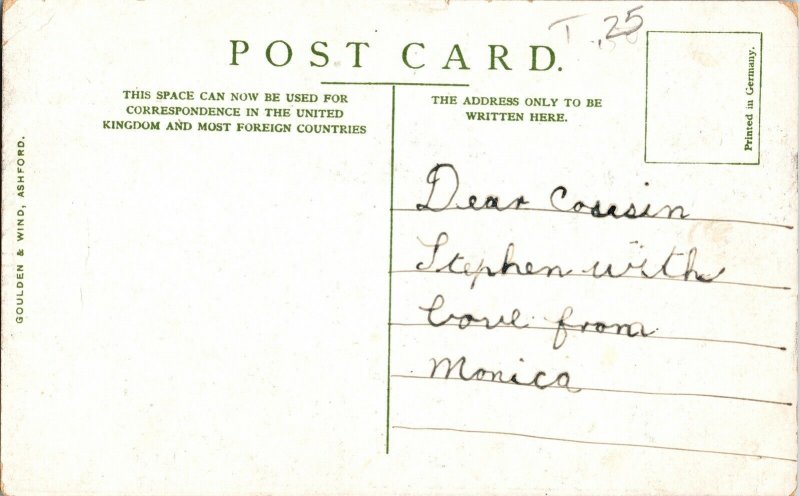 T .25
POST CARD.
THIS SPACE CAN NOW BE USED FOR
CORRESPONDENCE IN THE UNITED
KINGDOM AND MOST FOREIGN COUNTRIES
THE ADDRESS ONLY TO BE
WRITTEN HERE.
Printed in Germany.
GOULDEN & WIND, ASHFORD.
Dear Cousin
Stephen with
Love from
Monica